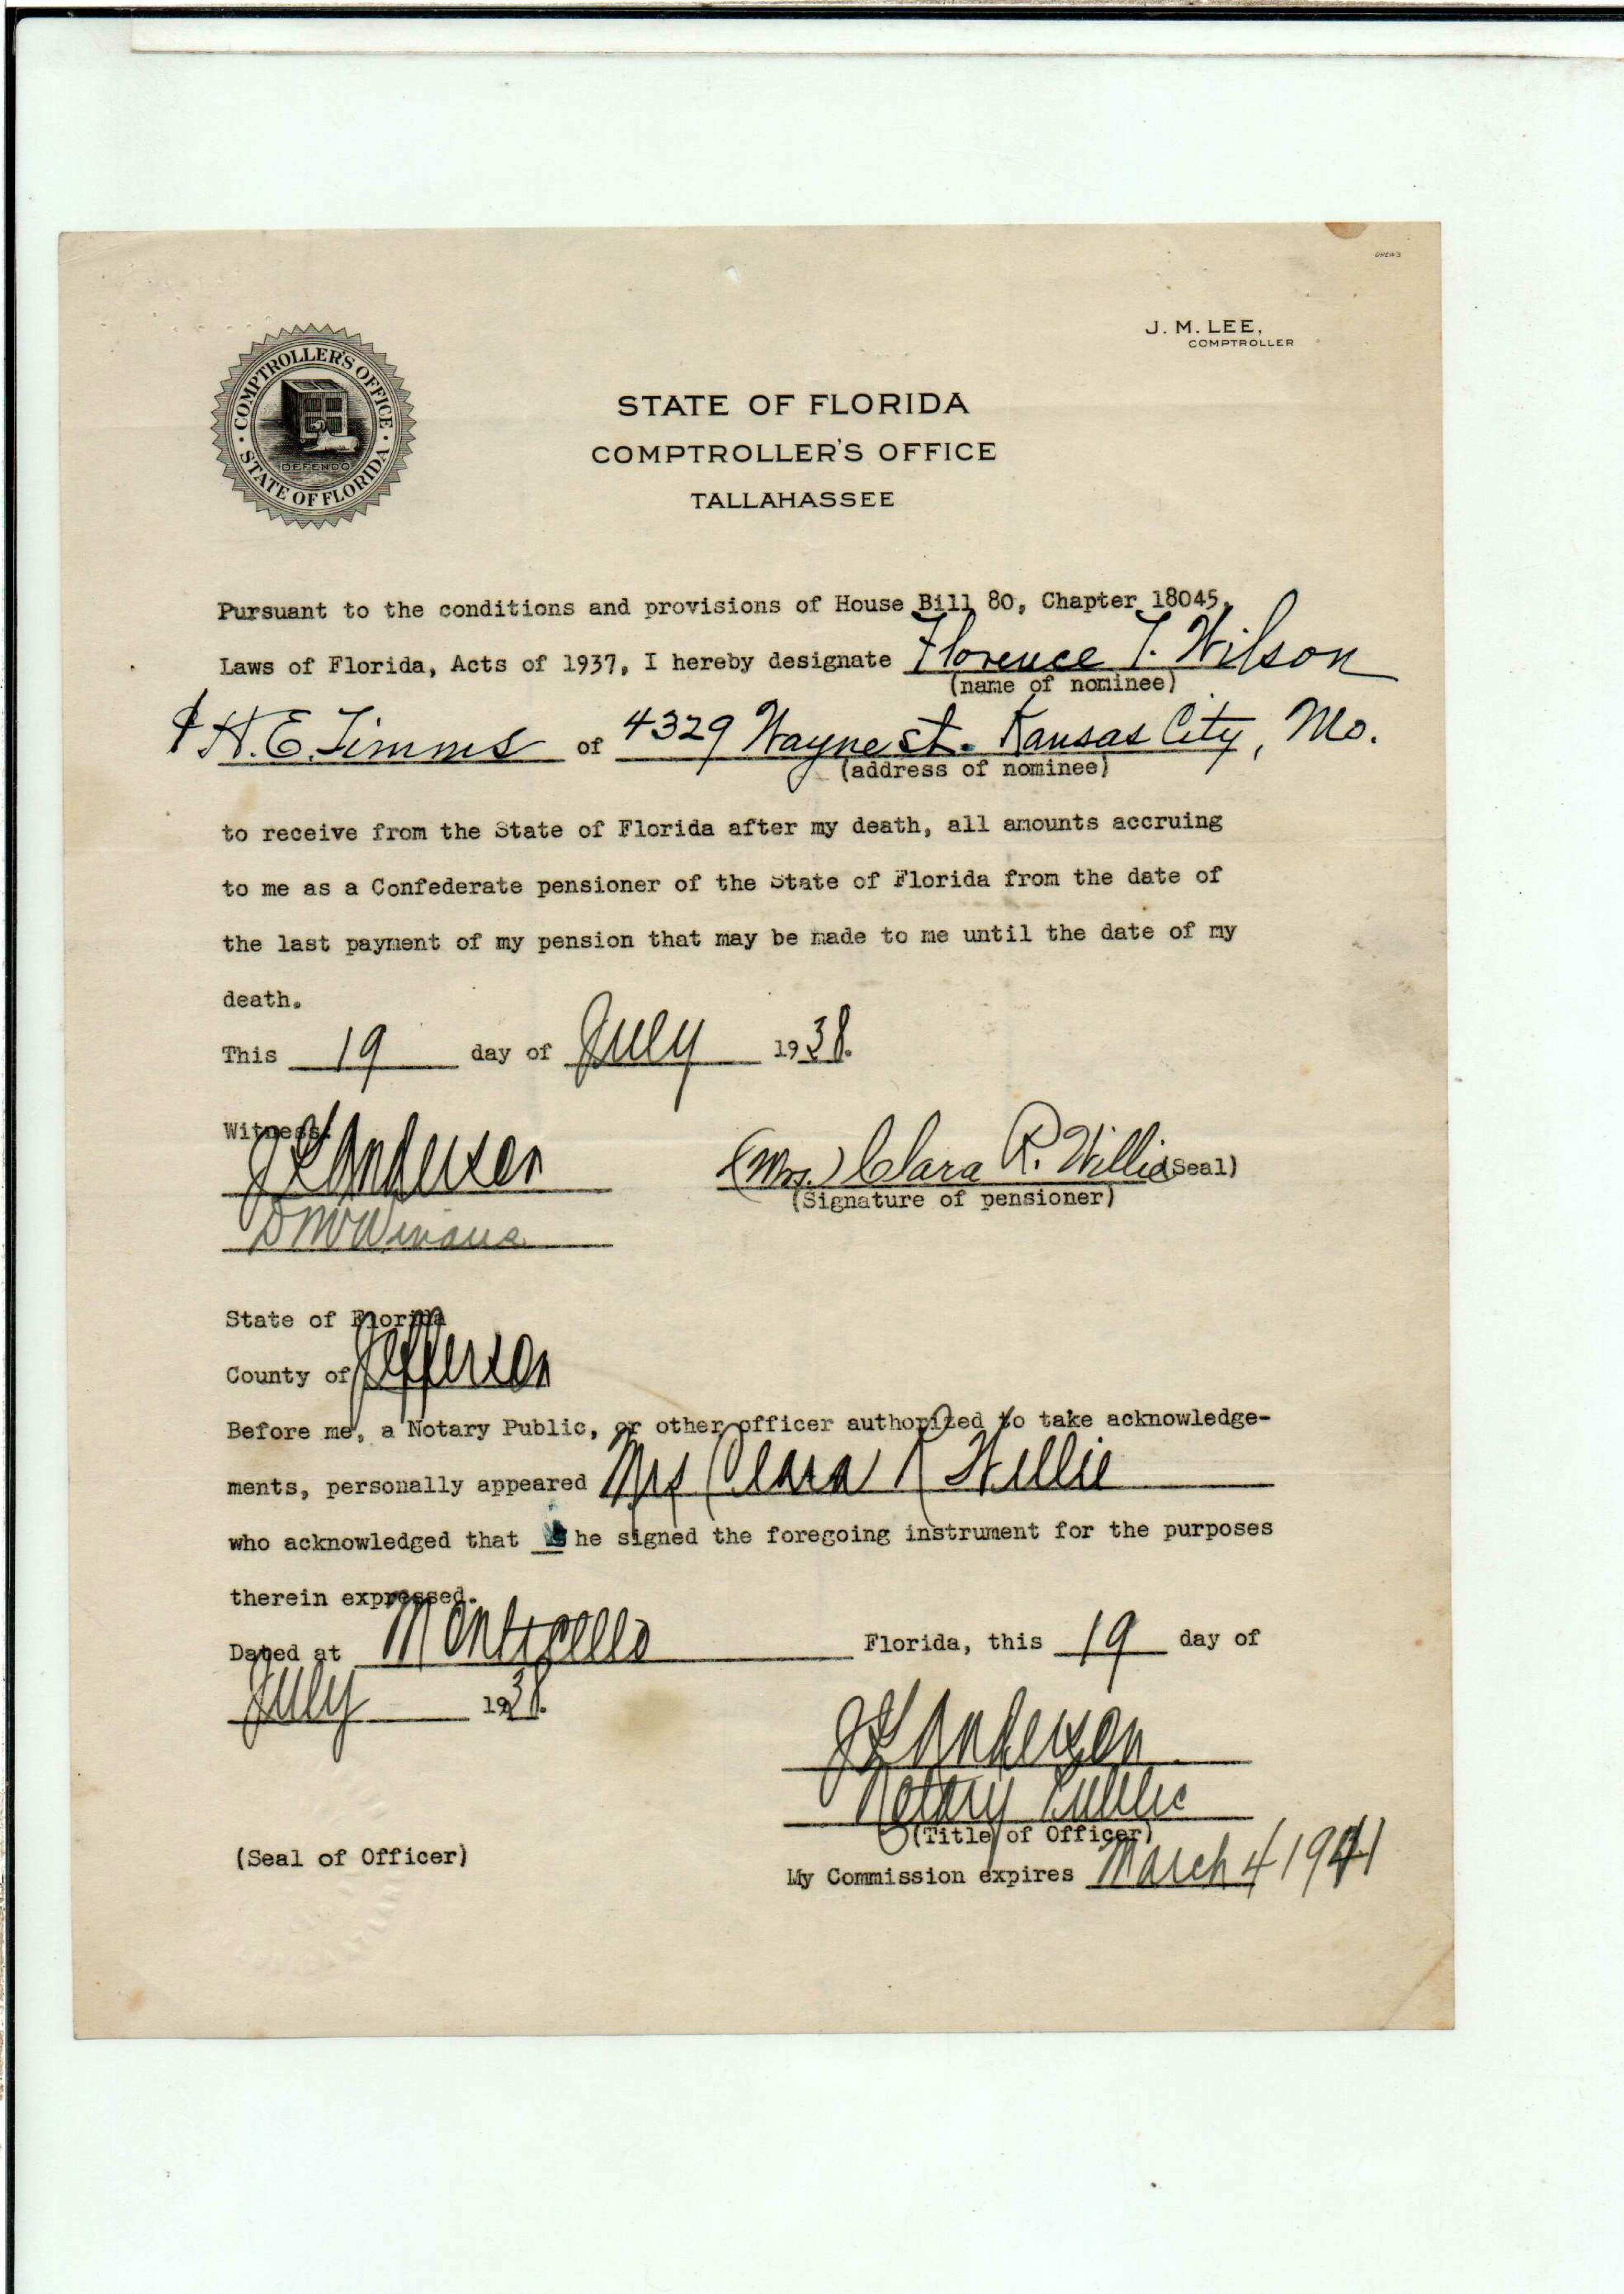 DREWS
J. M. LEE,
COMPTROLLER
COMPTROLLER'S OFFICE
DEFENDO
STATE OF FLORIDA
STATE OF FLORIDA
COMPTROLLER'S OFFICE
TALLAHASSEE
Pursuant to the conditions and provisions of House Bill 80, Chapter 18045,
Laws of Florida, Acts of 1937, I hereby designate Florence T. Wilson
(name of nominee)
& H. E. Timms of 4329 Wayne St. Kansas City, Mo.
(address of nominee)
to receive from the State of Florida after my death, all amounts accruing
to me as a Confederate pensioner of the State of Florida from the date of
the last payment of my pension that may be made to me until the date of my
death.
This 19 day of July 1938.
Witness:
Anderson (Mrs.) Clara R. Willie (Seal)
(Signature of pensioner)
State of Florida
County of Jefferson
Before me, a Notary Public, or other officer authorized to take acknowledge-
ments, personally appeared Mrs Clara R Willie
who acknowledged that she signed the foregoing instrument for the purposes
therein expressed.
Dated at Monticello Florida, this 19 day of
July 1938.
Anderson
Notary Public
(Title of Officer)
(Seal of Officer)
My Commission expires March 4 1941